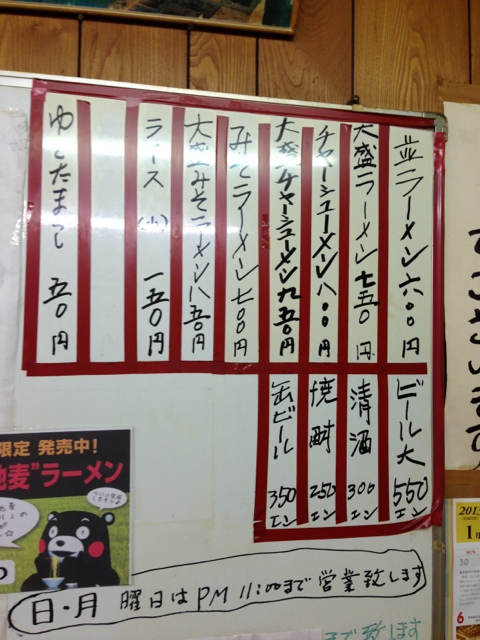 並ラーメン 六〇〇円
大盛ラーメン 七五〇円
チャーシューメン 八〇〇円
大盛チャーシューメン 九五〇円
みそラーメン 七〇〇円
大盛みそラーメン 八五〇円
ライス (小) 一五〇円
ゆでたまご 五〇円
ビール大 550エン
清酒 300エン
焼酎 250エン
缶ビール 350エン
限定 発売中!
地麦"ラーメン
日・月 曜日は PM 11:00まで 営業致します
まで 致します
2013
1
SUN
30
6